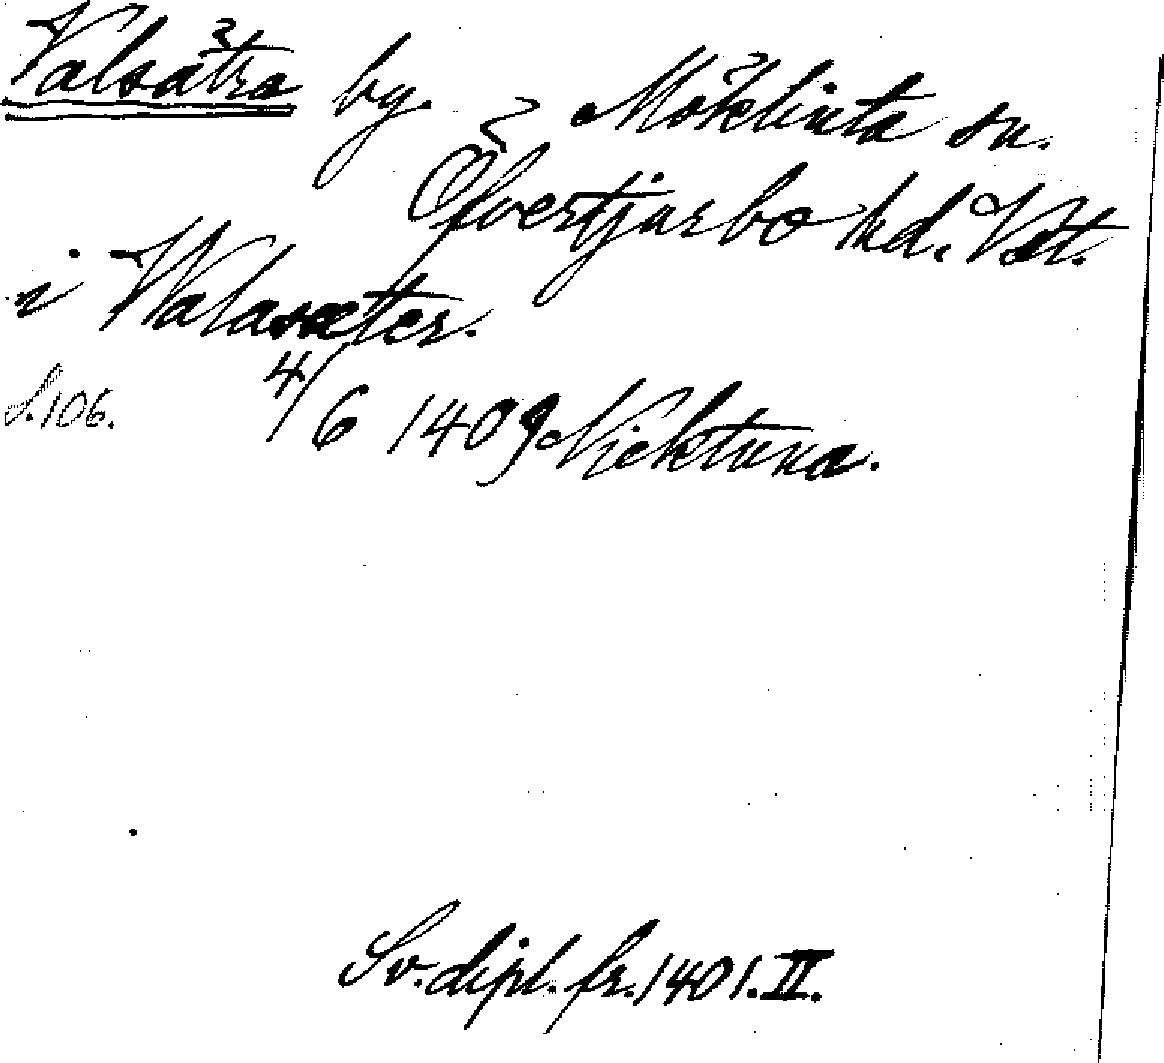 Valsätra by. Möklinta sn.
Öfvertjurbo hd. Vstl.
i Walasæter.
S. 106. 4/6 1409 Niektuna.
Sv. dipl. fr. 1401. II.